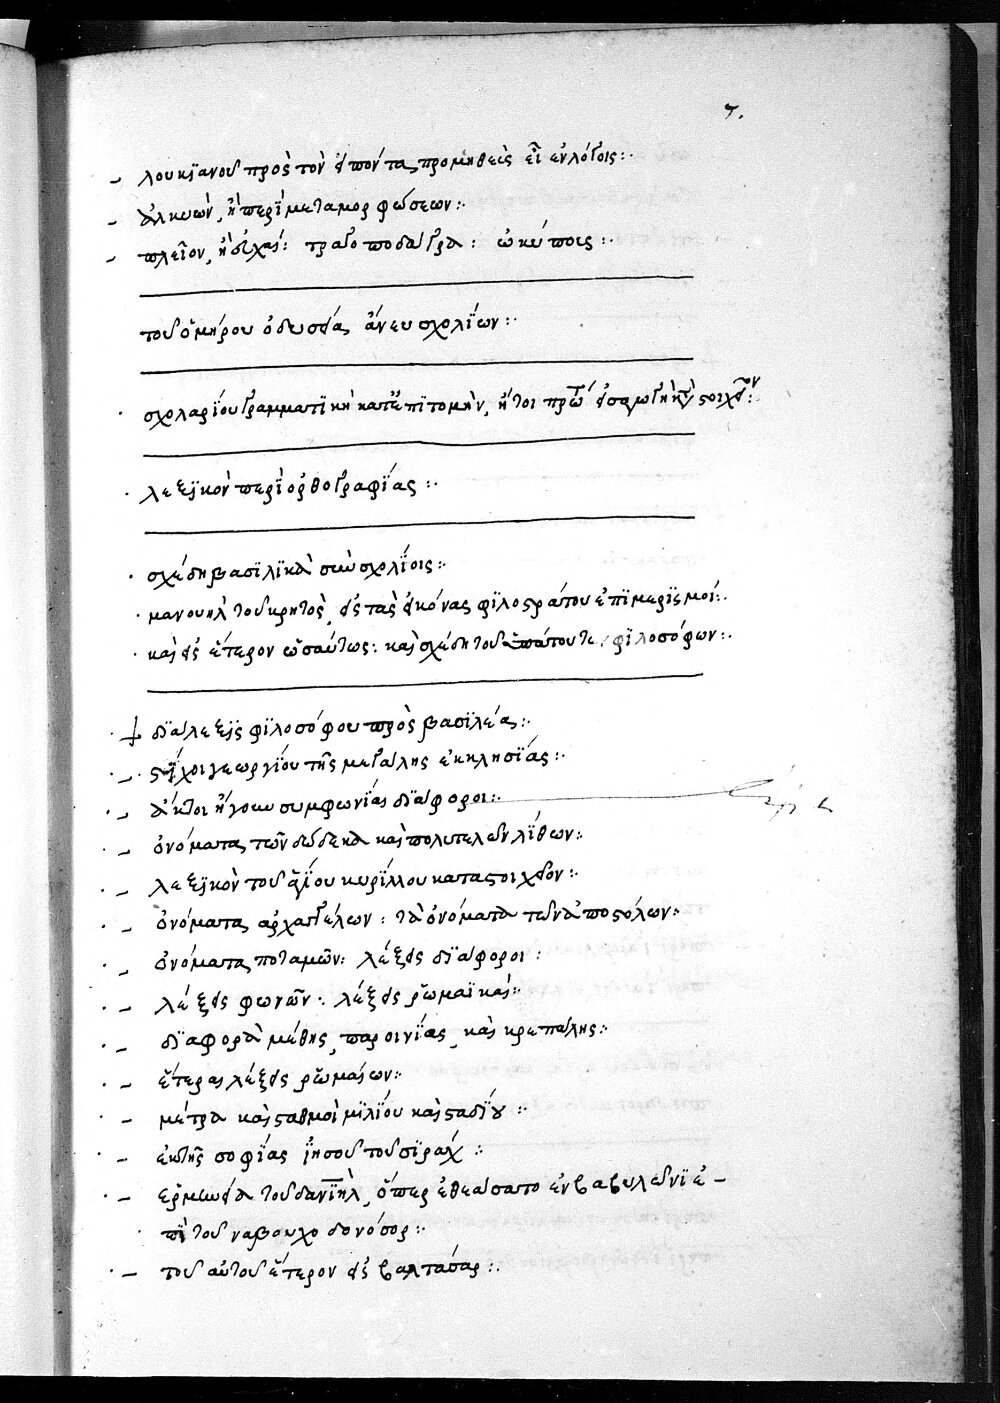 7.
λουκϊανοῦ πρὸς τὸν εἰπόντα, προμηθεὺς εἶ ἐν λόγοις:
ἀλκυὼν, ἢ περὶ μεταμορφώσεων:
πλεῖον, ἢ εὐχαί: τραγοποδάγρα: ὠκύπους:
τοῦ ὁμήρου ὀδυσσεία, ἄνευ σχολίων:
σχολαρίου γραμματϊκὴ κατ' ἐπϊτομὴν, ἤτοι
λεξϊκὸν περὶ ὀρθογραφίας:
σχέδη βασϊλϊκὰ σὺν σχολίοις:
μανουὴλ τοῦ κρητὸς, εἰς τὰς εἰκόνας φϊλοστράτου ἐπϊμερϊσμοί:
καὶ εἰς ἕτερον ὡσαύτως: καὶ σχέδη τοῦ ὑπάτου φϊλοσόφων:
δϊάλεξϊς φϊλοσόφου πρὸς βασϊλέα:
στίχοι γεωργίου τῆς μεγάλης ἐκκλησΐας:
ἄκτοι ἤγουν συμφωνίας δϊάφοροι:
ὀνόματα, τῶν δώδεκα καὶ πολυτελῶν λίθων:
λεξϊκὸν τοῦ ἁγίου κυρίλλου κατὰ στοιχεῖον:
ὀνόματα, ἀρχαγγέλων: τὰ ὀνόματα τῶν ἀποστόλων:
ὀνόματα, ποταμῶν: λέξεις δϊάφοροι:
λέξεις φωνῶν: λέξεις ῥωμαϊκαί:
δϊαφορὰ μέθης, παροινίας, καὶ κρεπάλης:
ἕτεραι λέξεις ῥωμαίων:
μέτρα καὶ σταθμοὶ μϊλίου καὶ σταδίου:
ἐκ τῆς σοφίας ἰησοῦ τοῦ σϊράχ:
ἑρμηνεία τοῦ δανϊὴλ, ὅπερ ἐθεάσατο ἐν βαβυλῶνϊ ἐ-
πὶ τοῦ ναβουχοδονόσορ:
τοῦ αὐτοῦ ἕτερον εἰς βαλτάσαρ: